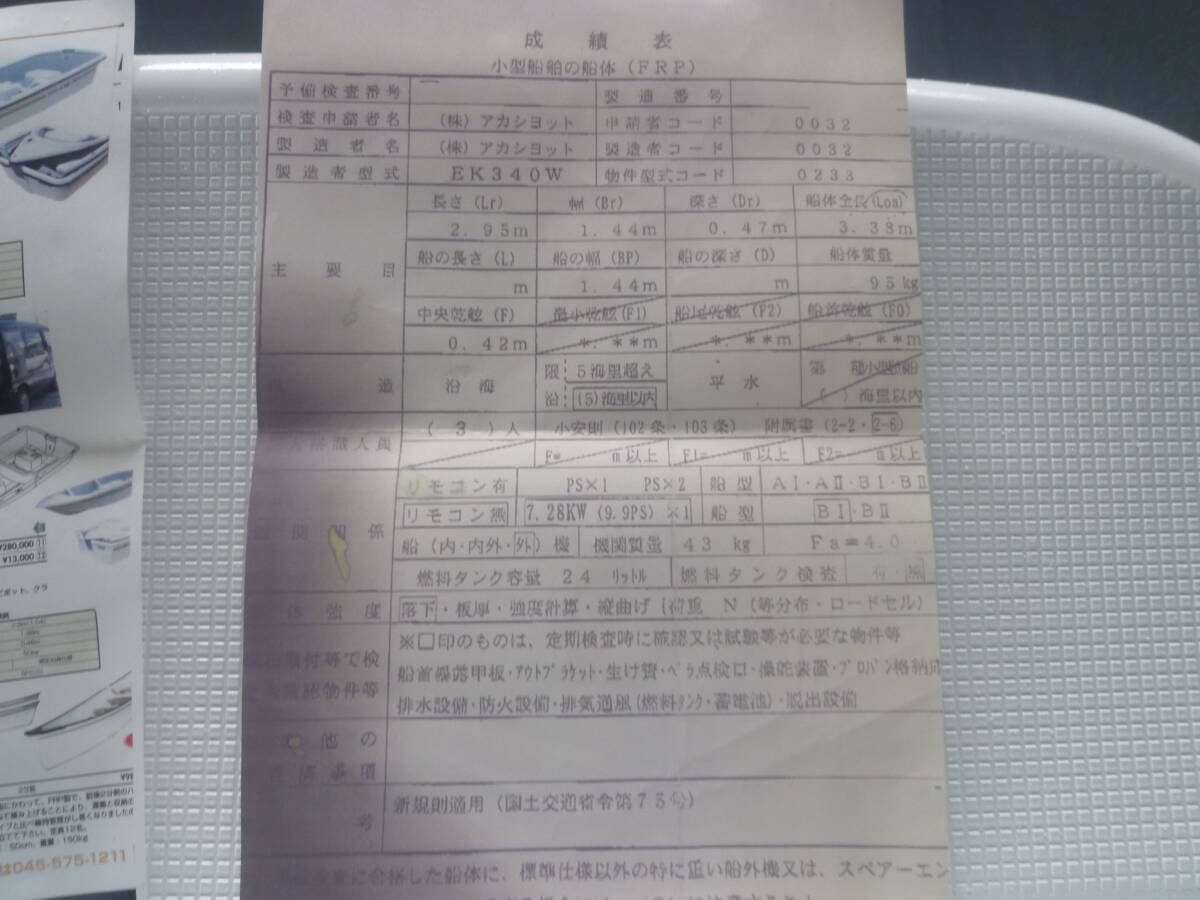 成績表
小型船舶の船体(FRP)
予備検査番号 製造番号
検査申請者名 (株)アカシヨット 申請者コード 0032
製造者名 (株)アカシヨット 製造者コード 0032
製造者型式 EK340W 物件型式コード 0233
長さ(Lr) 幅(Br) 深さ(Dr) 船体全長(Loa)
2.95m 1.44m 0.47m 3.38m
主要目 船の長さ(L) 船の幅(BP) 船の深さ(D) 船体質量
m 1.44m m 95kg
中央乾舷(F) 最小乾舷(F1) 船尾乾舷(F2) 船首乾舷(F0)
0.42m *.**m *.**m *.**m
造 沿海 限沿 5海里超え 平水 第 種小型船
(5)海里以内 ( )海里以内
(3)人 小安則(102条・103条) 附属書(2-2・2-6)
F= m以上 F1= m以上 F2= m以上
リモコン有 PS×1 PS×2 船型 AⅠ・AⅡ・BⅠ・BⅡ
リモコン無 7.28KW(9.9PS)×1 船型 BⅠ・BⅡ
関係 船(内・内外・外)機 機関質量 43 kg Fa=4.0
燃料タンク容量 24 リットル 燃料タンク検査 有・無
体強度 落下・板厚・強度計算・縦曲げ(荷重 N(等分布・ロードセル)
※□印のものは、定期検査時に確認又は試験等が必要な物件等
付等で検 船首暴露甲板・アウトブラケット・生け簀・ペラ点検口・操舵装置・プロパン格納
認物件等 排水設備・防火設備・排気通風(燃料タンク・蓄電池)・脱出設備
他の
事項
号 新規則適用(国土交通省令第75号)
に合格した船体に、標準仕様以外の特に重い船外機又は、スペアーエン
¥280,000
¥13,000
2分割
にかわって、FRP製で、前後2分割の
で積み上げることにより、運搬と収納の
立てて下さい。定員12名。
:50cm、重量:150kg
は045-575-1211